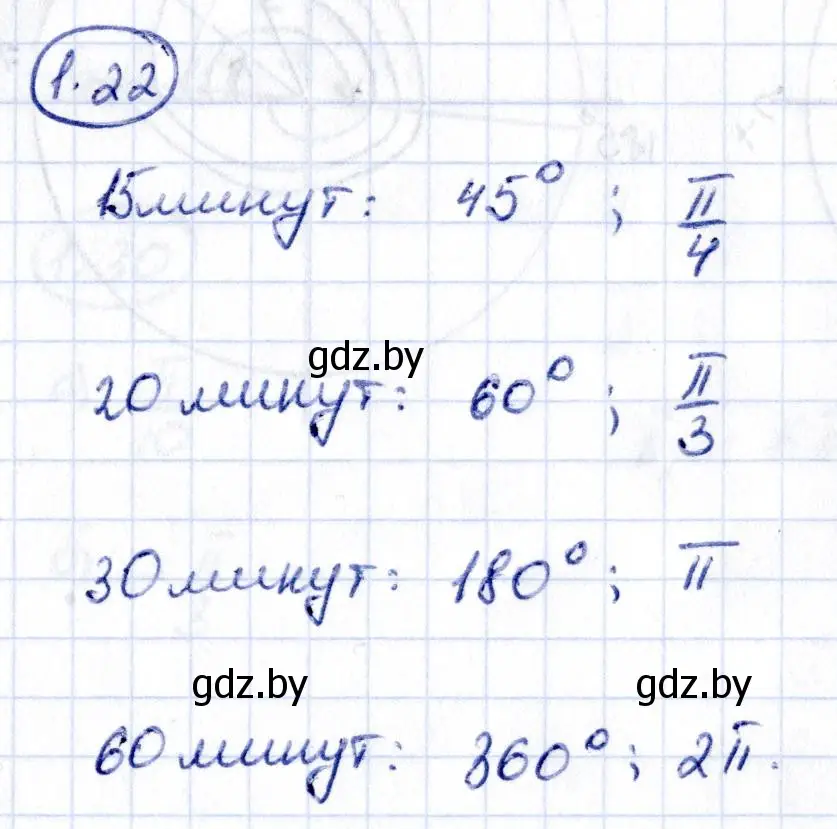 1.22
15 минут: 45° ; π/4
gdz.by
20 минут: 60° ; π/3
30 минут: 180° ; π
gdz.by gdz.by
60 минут: 360° ; 2π.